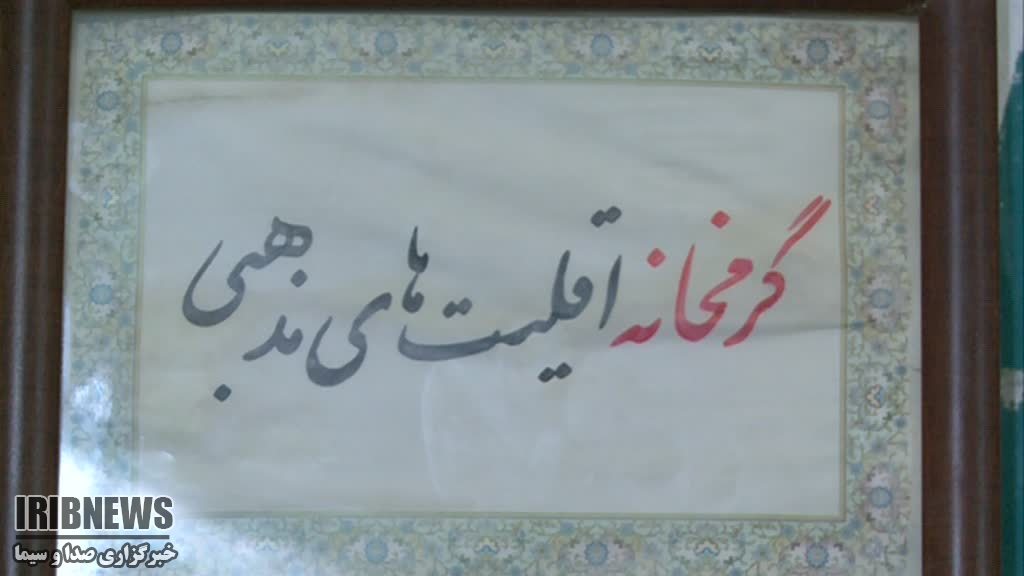 گرمخانه اقلیت های مذهبی
IRIBNEWS
خبرگزاری صدا و سیما